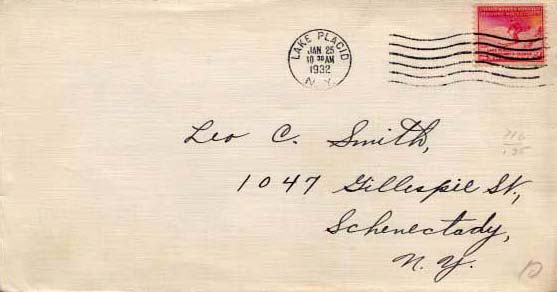 LAKE PLACID
JAN 25
10 30 AM
1932
N.Y.
Leo C. Smith,
1047 Gillespie St.,
Schenectady,
N.Y.
716